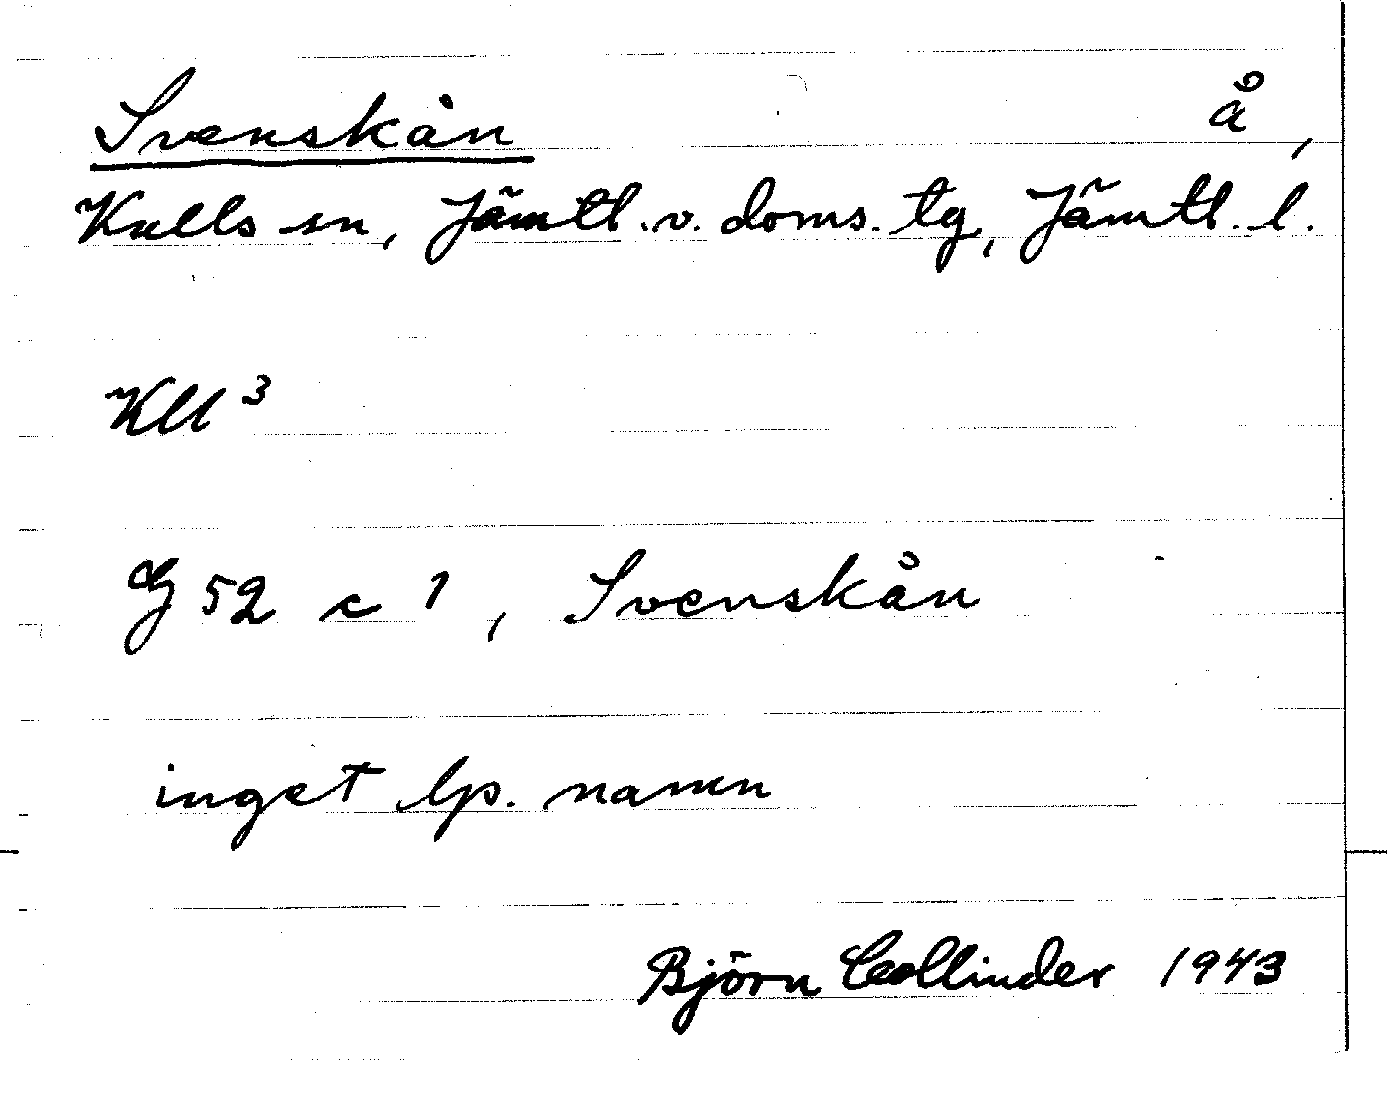 Svenskån å,
Kalls sn, Jämtl. v. doms. tg, Jämtl. l.
Kll 3
G 52 c 1, Svenskån
inget lp. namn
Björn Collinder 1943